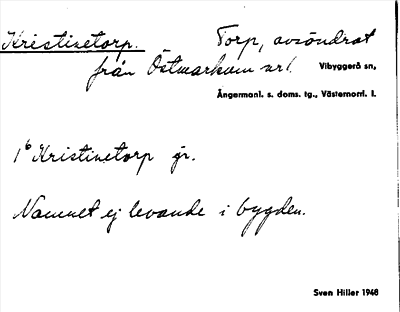 Kristinetorp. Torp, avsöndrat
från Östmarkum nr 1. Vibyggerå sn,
Ångermanl. s. doms. tg., Västernorrl. l.
1⁶ Kristinetorp gr.
Namnet ej levande i bygden.
Sven Hiller 1948